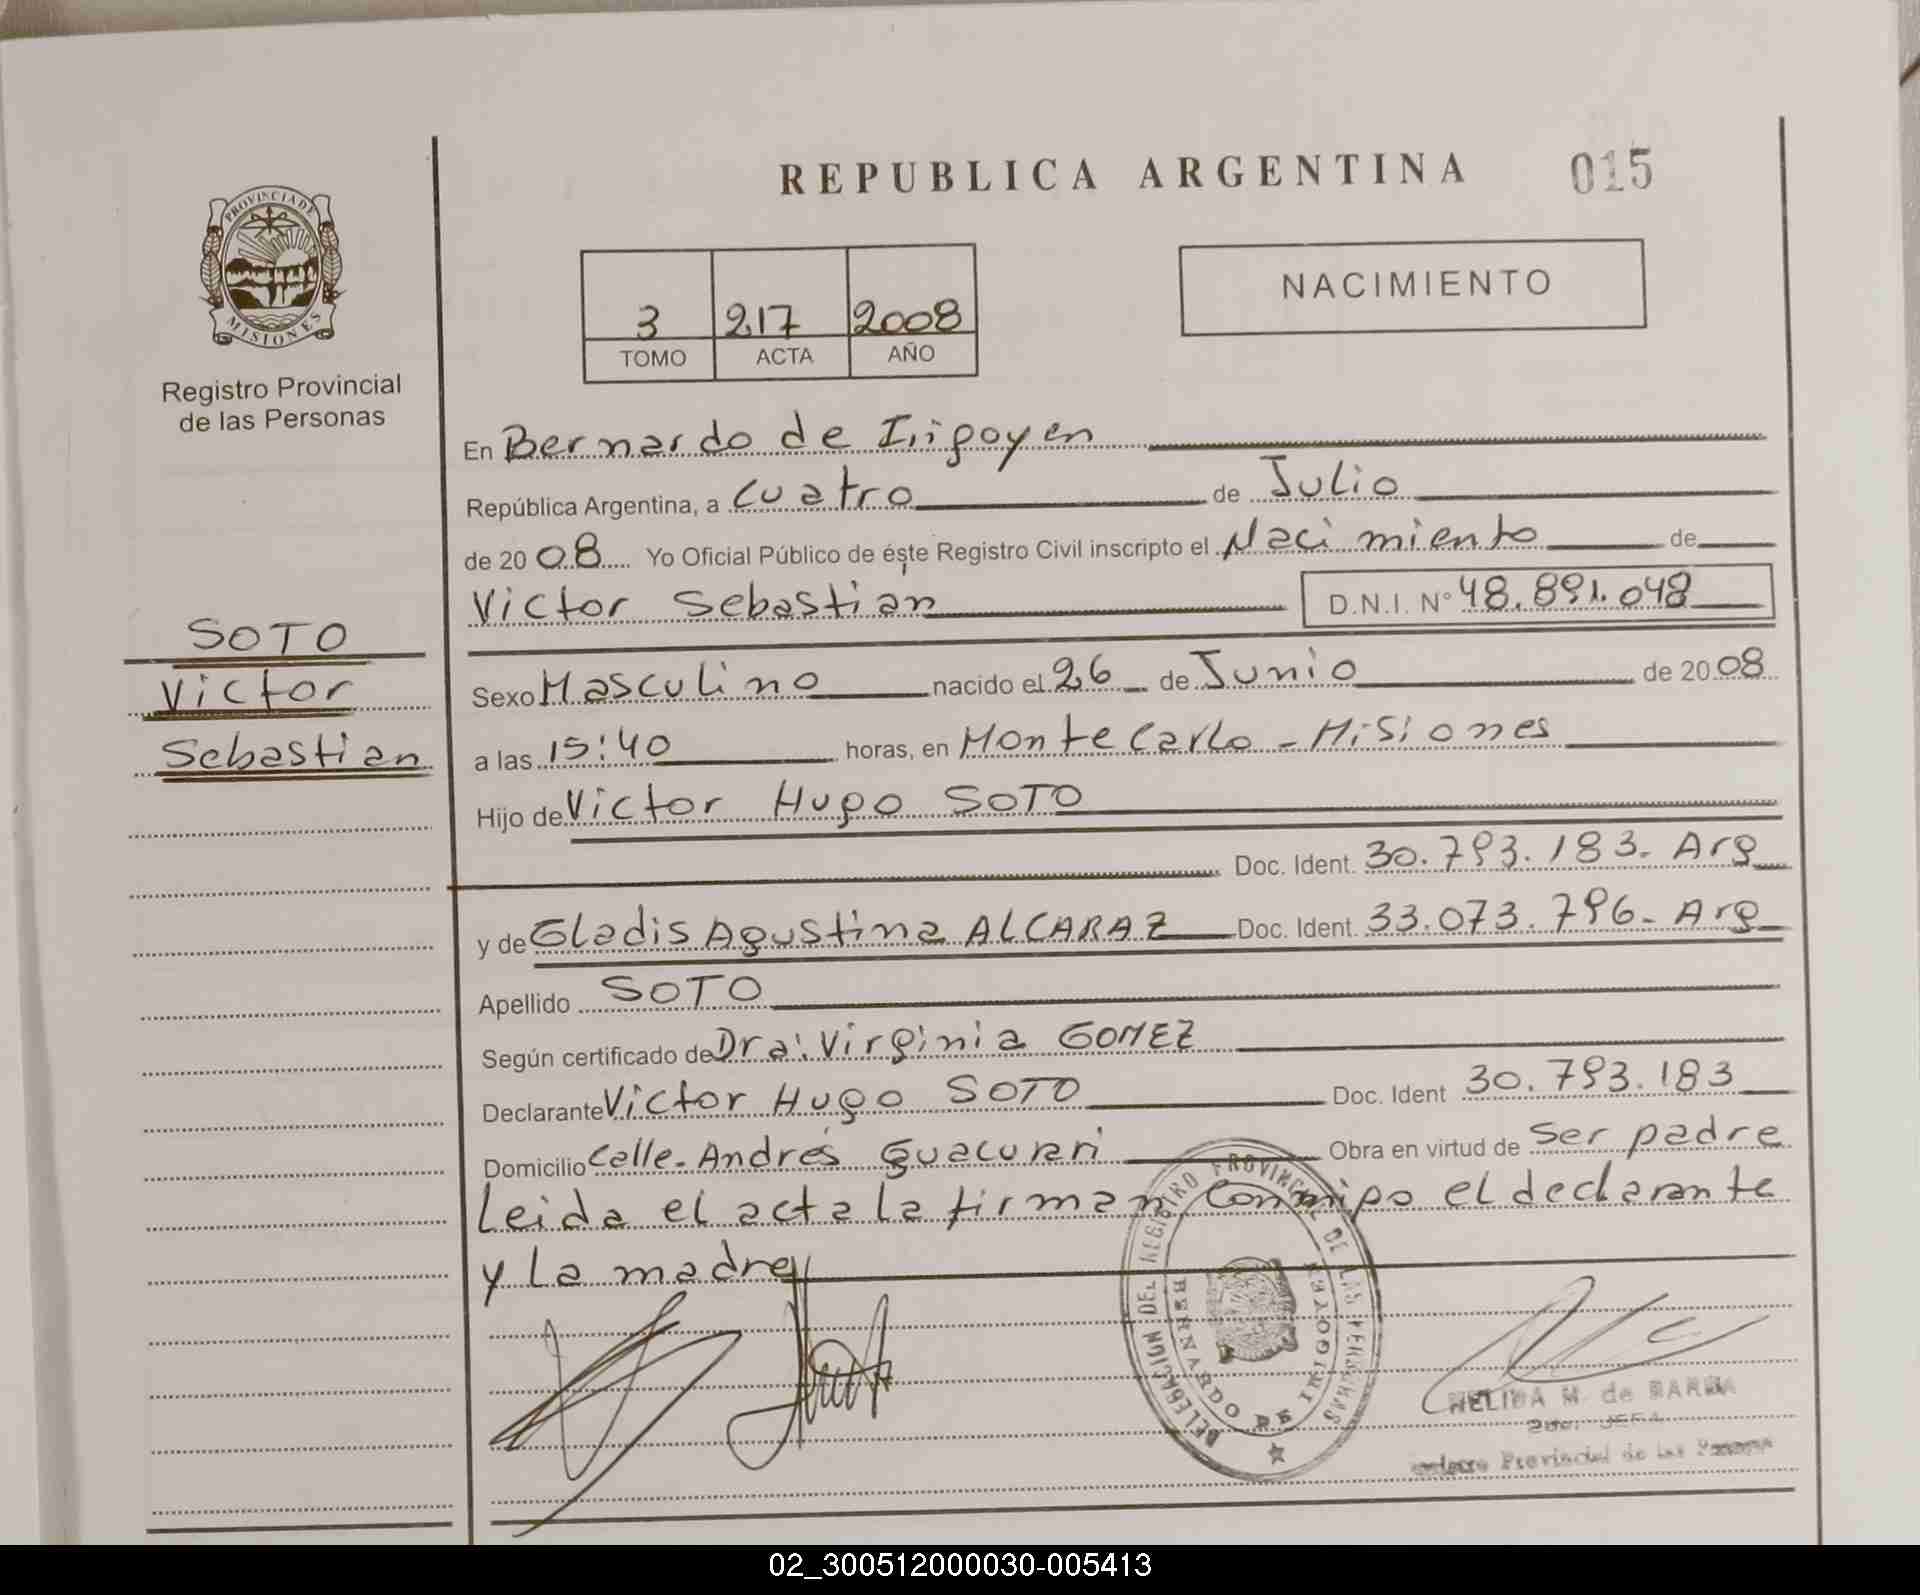 REPUBLICA ARGENTINA 015
PROVINCIA DE
MISIONES
Registro Provincial
de las Personas
3 217 2008
TOMO ACTA AÑO
NACIMIENTO
SOTO
Victor
Sebastian
En Bernardo de Irigoyen
República Argentina, a Cuatro de Julio
de 2008 Yo Oficial Público de éste Registro Civil inscripto el Nacimiento de
Victor Sebastian D.N.I. N° 48.891.048
Sexo Masculino nacido el 26 de Junio de 2008
a las 15:40 horas, en Montecarlo - Misiones
Hijo de Victor Hugo SOTO
Doc. Ident. 30.793.183. Arg
y de Gladis Agustina ALCARAZ Doc. Ident. 33.073.796- Arg
Apellido SOTO
Según certificado de Dra: Virginia GOMEZ
Declarante Victor Hugo SOTO Doc. Ident 30.793.183
Domicilio Calle. Andrés Guacurari Obra en virtud de Ser padre
Leida el acta la firman Conmigo el declarante
y La madre
DELEGACION DEL REGISTRO PROVINCIAL DE LAS PERSONAS
BERNARDO DE IRIGOYEN
M. de
JEFA
Provincial de las
02_300512000030-005413